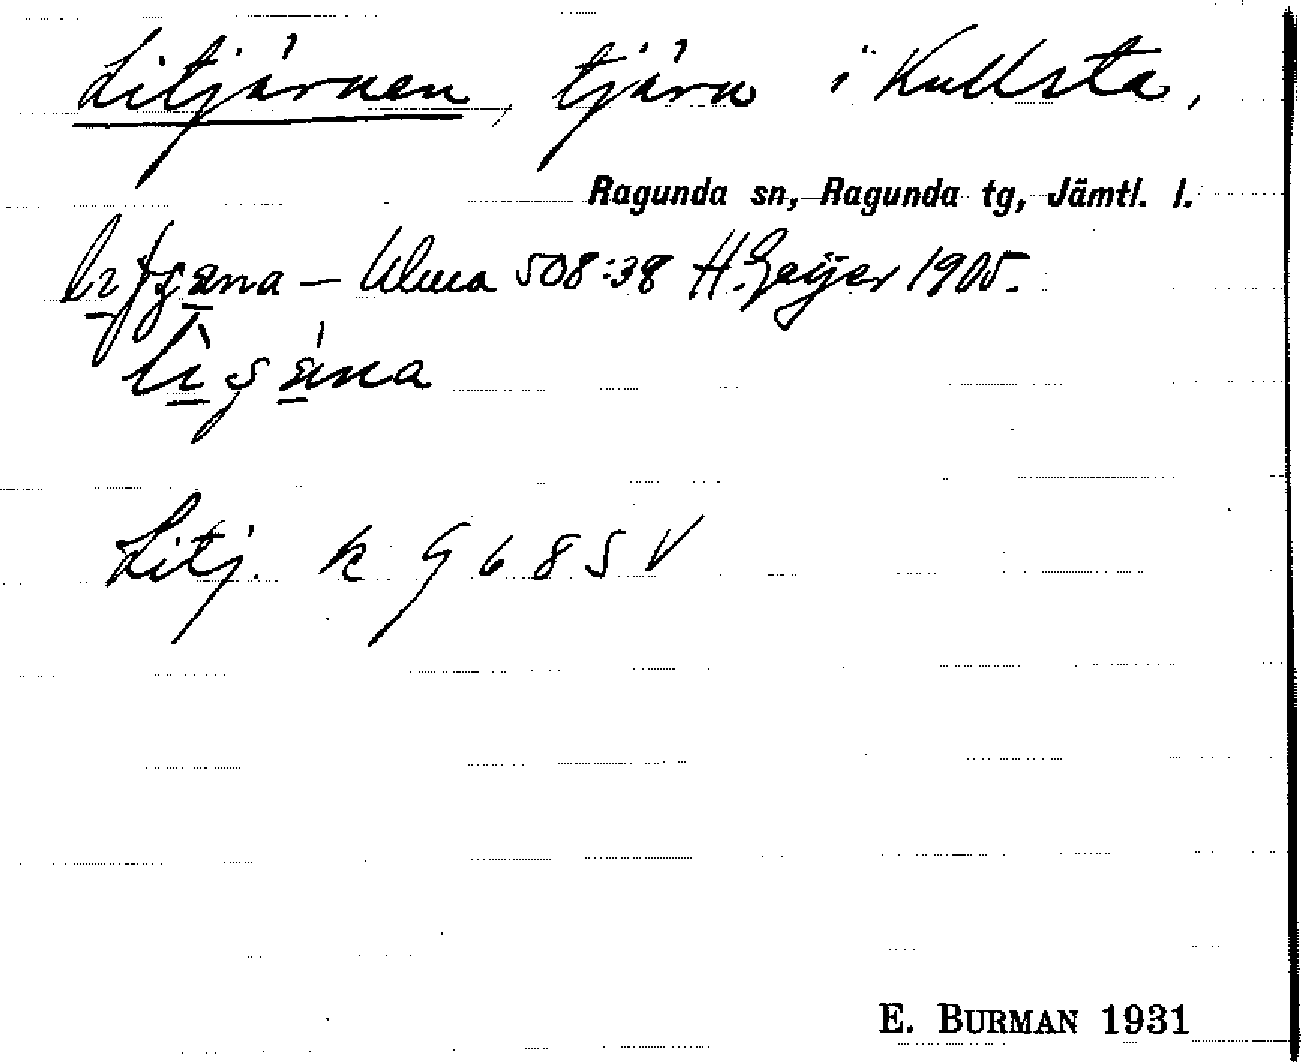 Litjärnen, tjärn i Kullsta,
Ragunda sn, Ragunda tg, Jämtl. l.
— Ulma 508:38 H. Geijer 1905.
Litj. k G 6 8 S V
E. BURMAN 1931